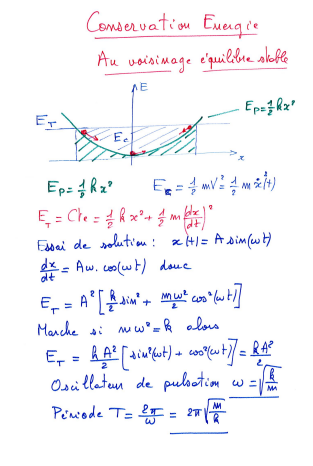 Conservation Energie
Au voisinage équilibre stable
E
E_T
E_c
E_P = 1/2 k x²
x
E_P = 1/2 k x²
E_K = 1/2 m V² = 1/2 m ẋ²(t)
E_T = Cte = 1/2 k x² + 1/2 m (dx/dt)²
Essai de solution : x(t) = A sin(ωt)
dx/dt = Aω.cos(ωt) donc
E_T = A² [k/2 sin² + mω²/2 cos²(ωt)]
Marche si mω² = k alors
E_T = kA²/2 [sin²(ωt) + cos²(ωt)] = kA²/2
Oscillateur de pulsation ω = √(k/m)
Période T = 2π/ω = 2π √(m/k)